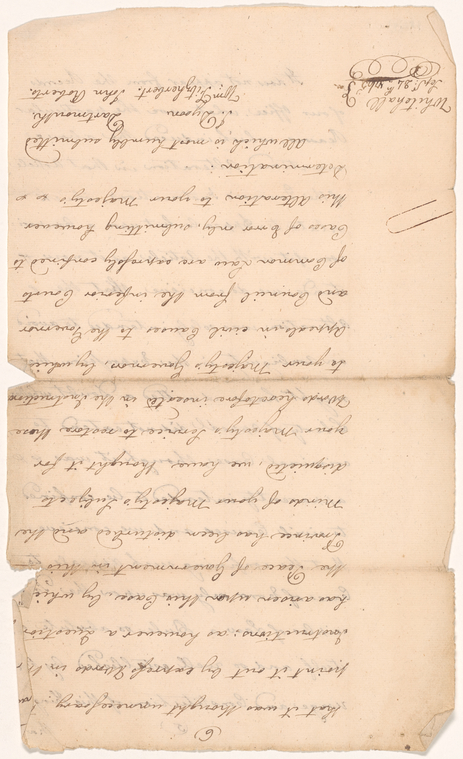 6)
that it was thought unnecessary
point it out by express Words in
Instructions: as however a Question
has arisen upon this Case, by whi
the Peace of Government in this
Province has been disturbed and the
Minds of your Majesty's Subjects
disquieted, we have thought it for
your Majesty's Service to restore those
Words heretofore inserted in the Instruction
to your Majesty's Governor, by which
Appeals in civil Causes to the Governor
and Council from the inferior Courts
of Common Law are expressly confined to
Cases of Error only, submitting however
this Alteration to your Majesty's
Determination:
All which is most humbly submitted
Dartmouth
J. Dyson
Wm. Fitzherbert. John Roberts.
Whitehall
Sept. 24th 1765